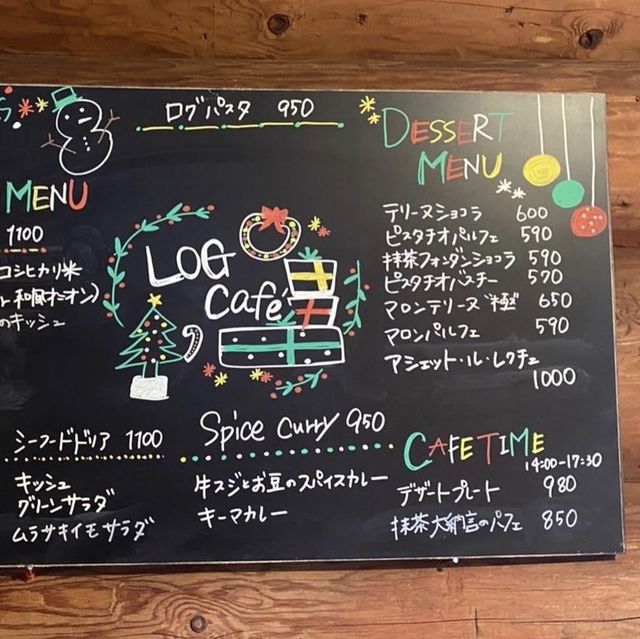 MENU
1100
コシヒカリ米
和風オニオン)
のキッシュ
シーフードドリア 1100
キッシュ
グリーンサラダ
ムラサキイモサラダ
ログパスタ 950
LOG
Cafe
Spice Curry 950
牛スジとお豆のスパイスカレー
キーマカレー
DESSERT
MENU
テリーヌショコラ 600
ピスタチオパルフェ 590
抹茶フォンダンショコラ 590
ピスタチオバスチー 570
マロンテリーヌ〝極〟 650
マロンパルフェ 590
アシェット・ル・レクチェ
1000
CAFE TIME
14:00-17:30
デザートプレート 980
抹茶大納言のパフェ 850